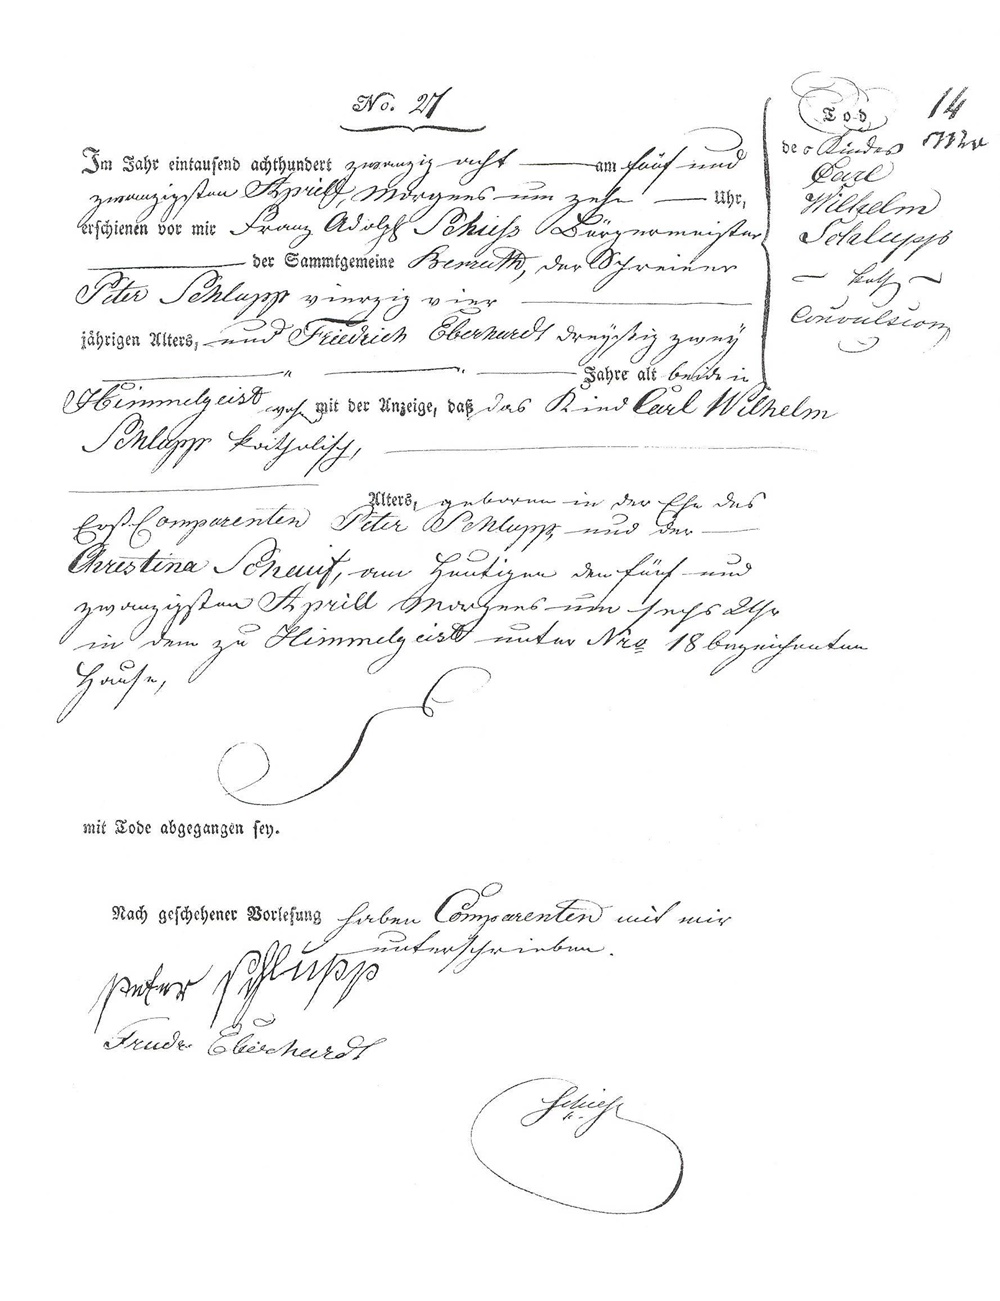 No. 27
Im Jahr eintausend achthundert zwanzig acht — am fünf und
zwanzigsten Aprill, Morgens um zehn — Uhr,
erschienen vor mir Franz Adolph Schiess Bürgermeister
der Sammtgemeine Benrath, der Schreiner
Peter Schlupp vierzig vier
jährigen Alters, und Friedrich Eberhardt dreyssig zwey
" " Jahre alt beide in
Himmelgeist wohn mit der Anzeige, daß das Kind Carl Wilhelm
Schlupp katholisch,
Alters, geboren in der Ehe des
Erst Comparenten Peter Schlupp und der —
Christina Schauf, am heutigen den fünf und
zwanzigsten Aprill Morgens um sechs Uhr
in dem zu Himmelgeist unter Nro 18 bezeichneten
Hause,
mit Tode abgegangen sey.
Nach geschehener Vorlesung haben Comparenten mit mir
unterschrieben.
Peter Schlupp
Friedr Eberhardt
Schiess
Tod
des Kindes
Carl
Wilhelm
Schlupp
— kath —
Convulsion
14